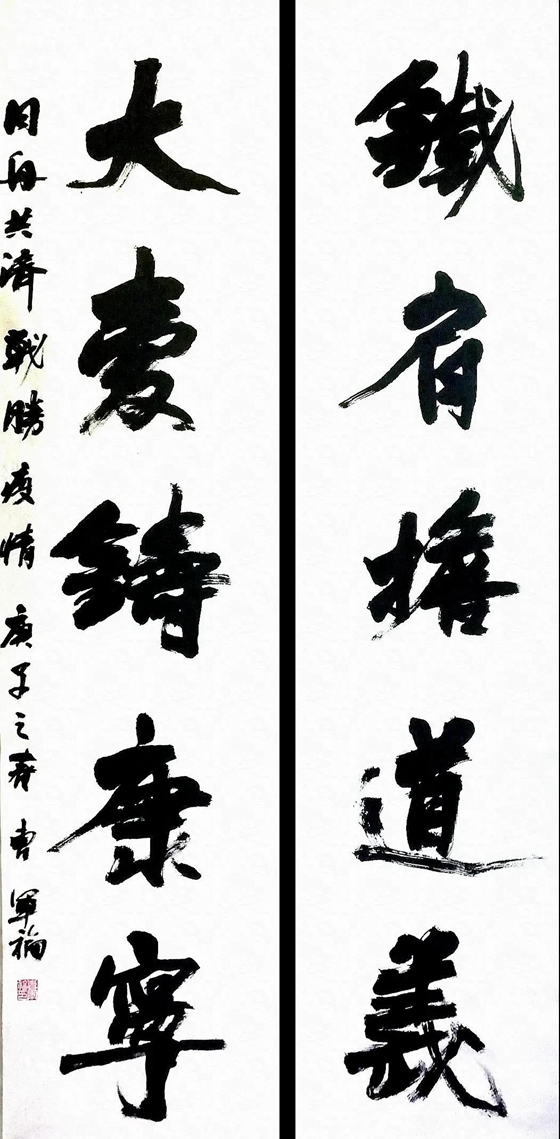 鐵肩擔道義
大愛鑄康寧
同舟共濟戰勝疫情庚子之春曹軍福